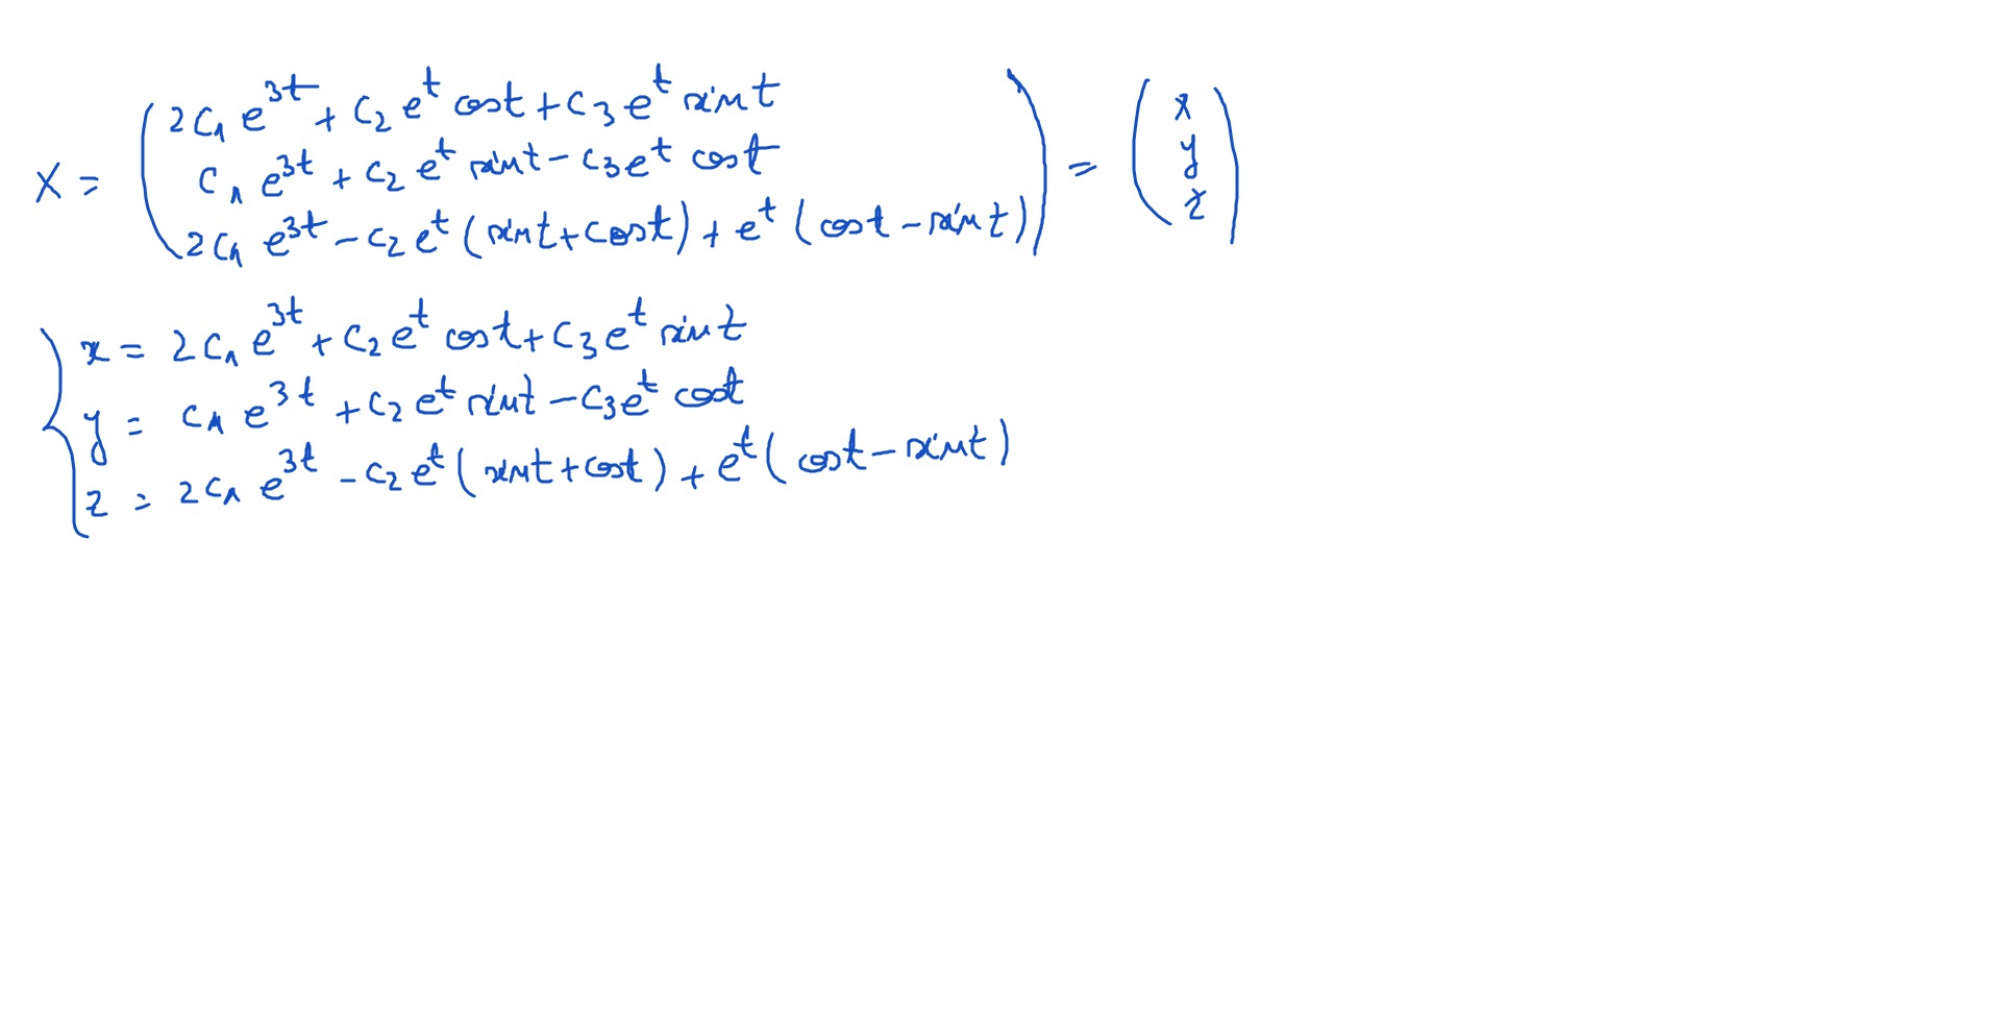 X = ( 2c₁ e^{3t} + c₂ e^t cost + c₃ e^t sint
c₁ e^{3t} + c₂ e^t sint - c₃ e^t cost
2c₁ e^{3t} - c₂ e^t (sint + cost) + e^t (cost - sint) ) = ( x y z )
{ x = 2c₁ e^{3t} + c₂ e^t cost + c₃ e^t sint
y = c₁ e^{3t} + c₂ e^t sint - c₃ e^t cost
z = 2c₁ e^{3t} - c₂ e^t (sint + cost) + e^t (cost - sint)